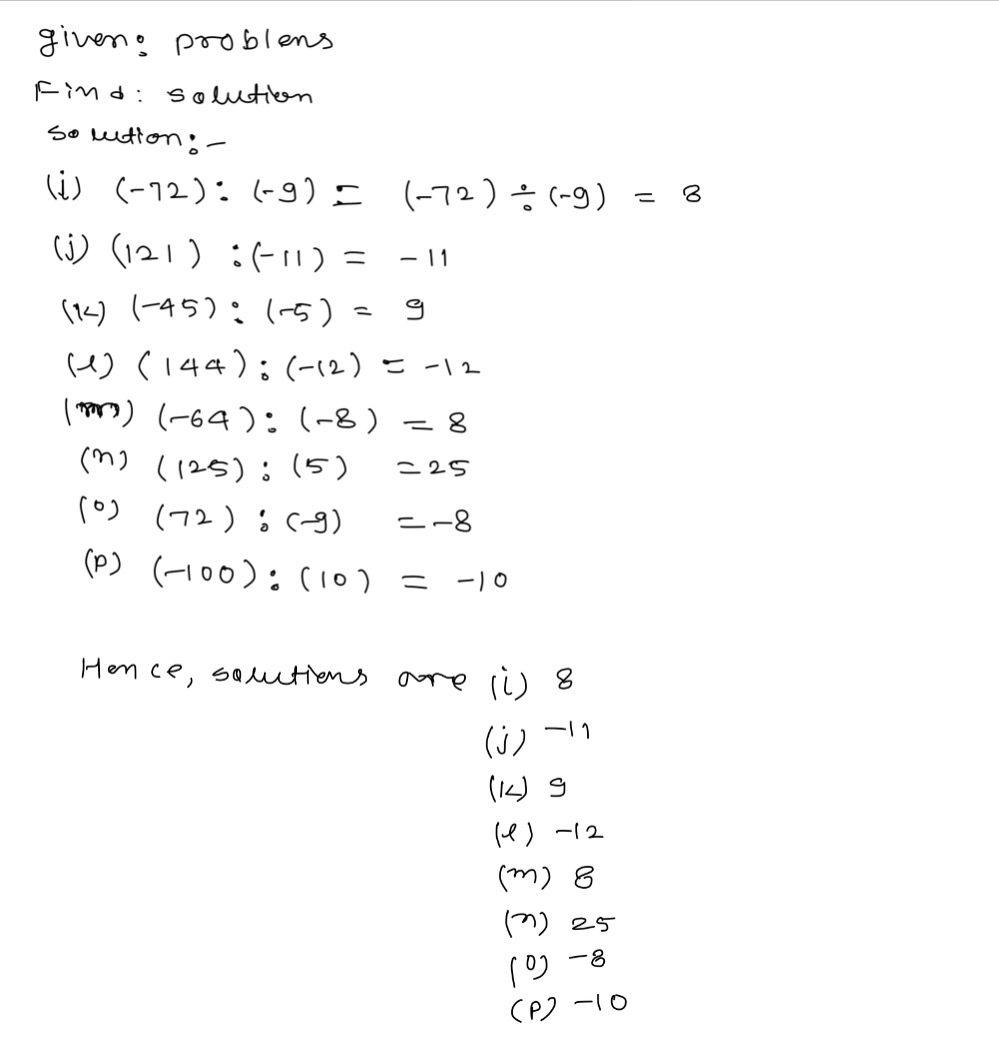 given: problems
Find: solution
solution:-
(i) (-72): (-9) = (-72) ÷ (-9) = 8
(j) (121) :(-11) = -11
(k) (-45): (-5) = 9
(l) (144): (-12) = -12
(m) (-64): (-8) = 8
(n) (125): (5) = 25
(o) (72): (-9) = -8
(p) (-100): (10) = -10
Hence, solutions are (i) 8
(j) -11
(k) 9
(l) -12
(m) 8
(n) 25
(o) -8
(p) -10